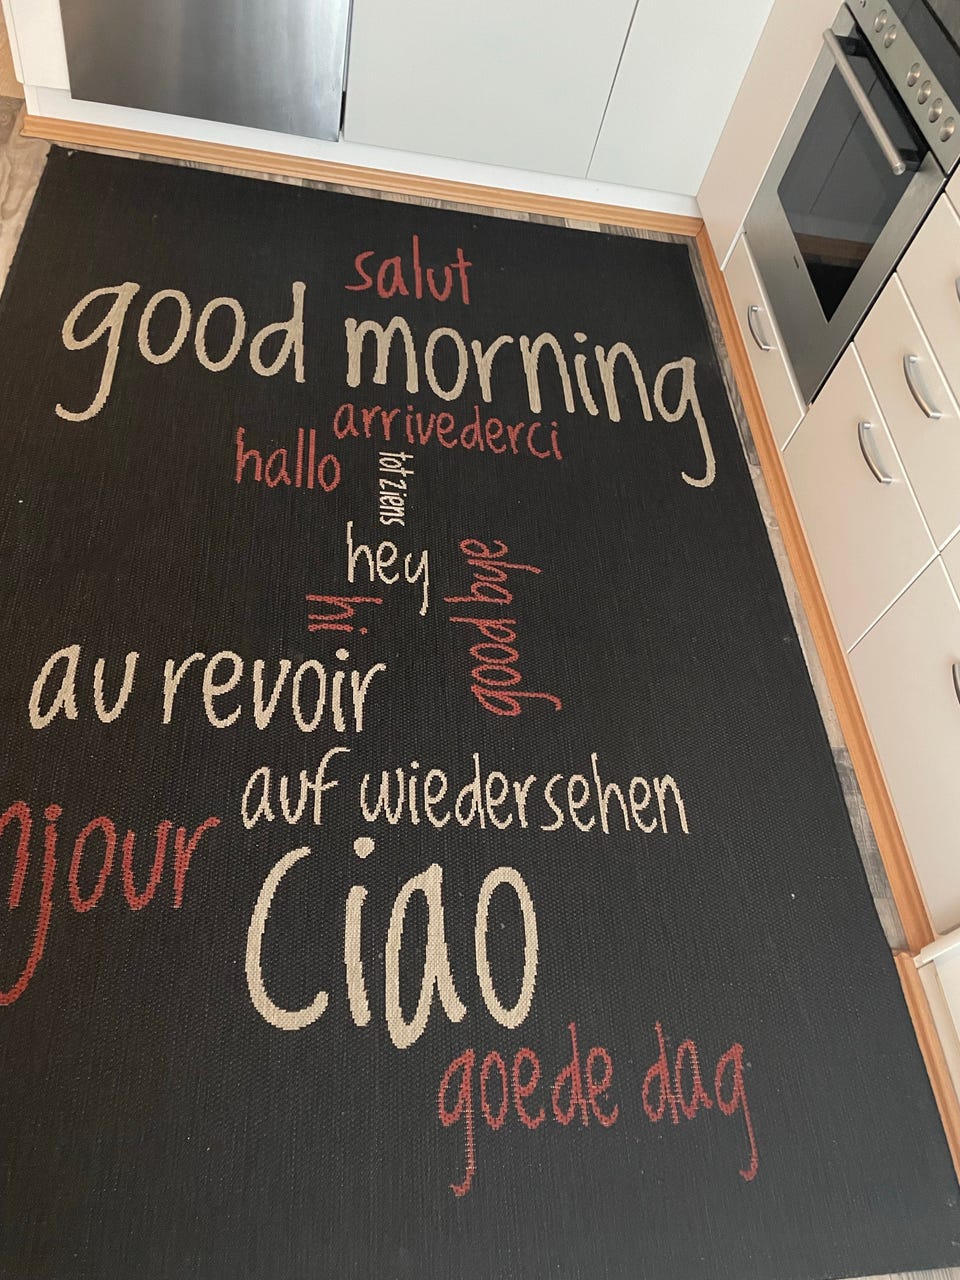 salut
good morning
arrivederci
hallo
tot ziens
hey
good bye
hi
au revoir
auf wiedersehen
njour
Ciao
goede dag